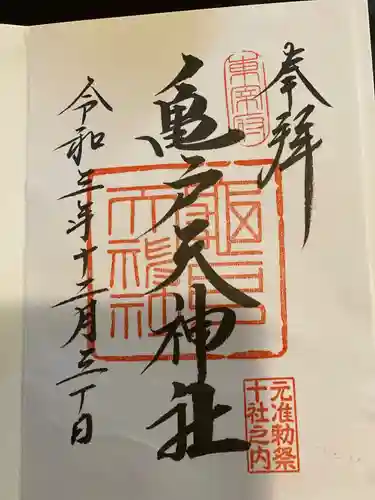 奉拝
東宰府
亀戸天神社
亀戸天神社
元准勅祭
十社之内
令和三年十二月三十日